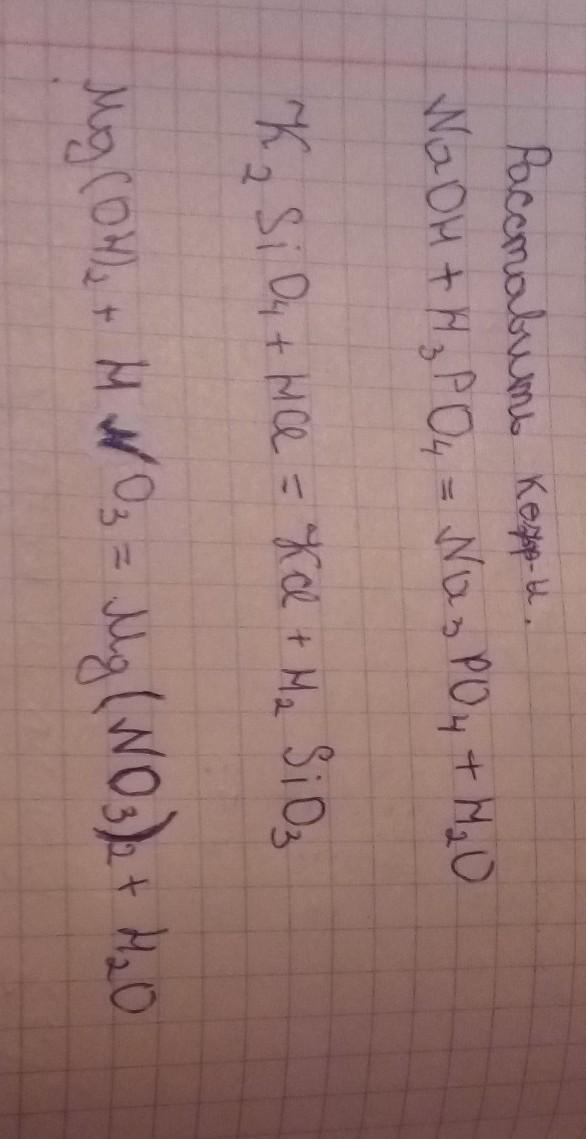 Расставить коэф-ы.
NaOH + H₃PO₄ = Na₃PO₄ + H₂O
K₂SiO₄ + HCl = KCl + H₂SiO₃
Mg(OH)₂ + HNO₃ = Mg(NO₃)₂ + H₂O